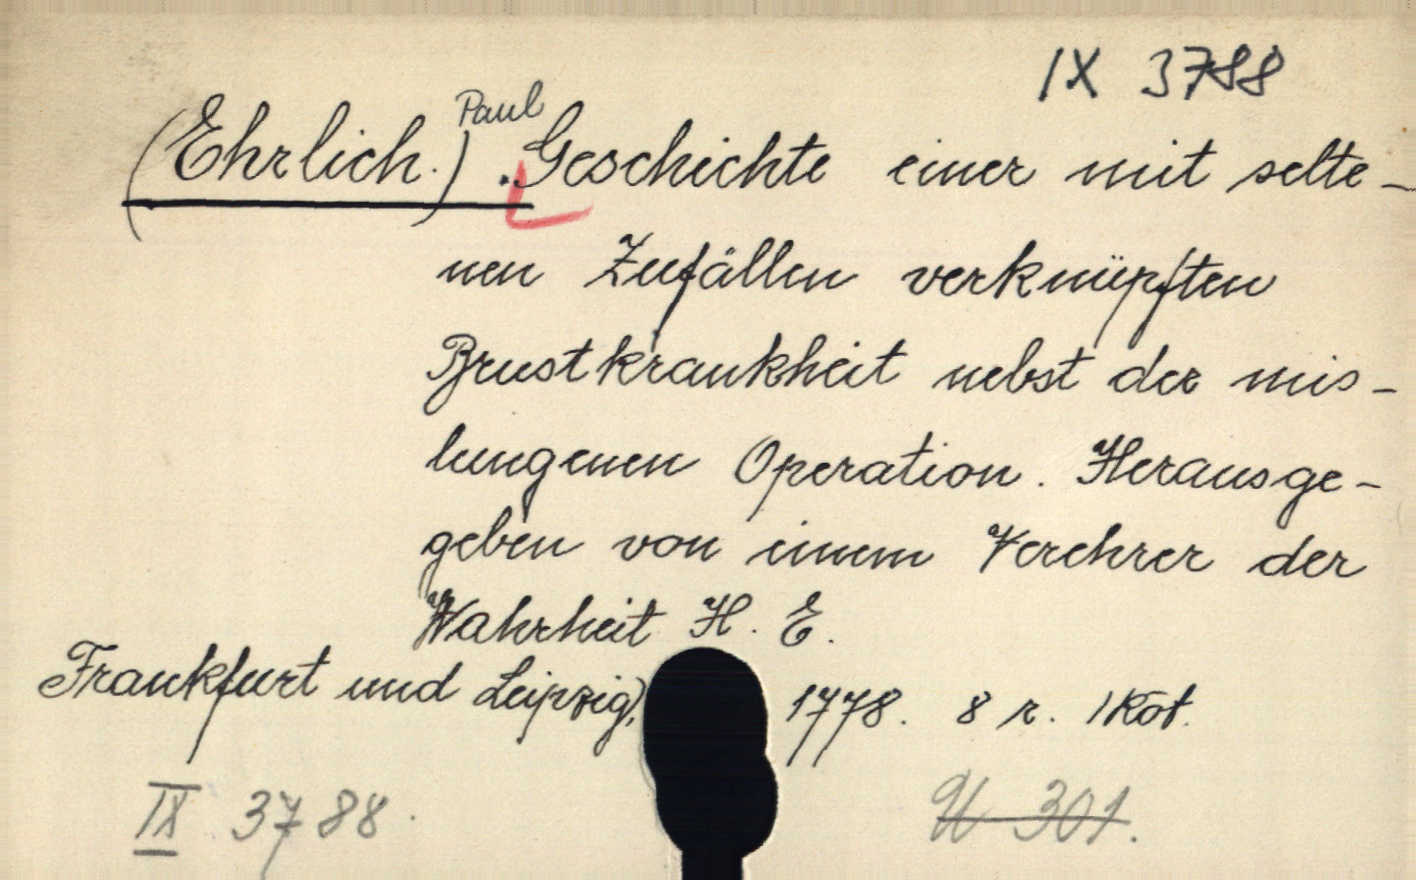 IX 3788
Paul
(Ehrlich.) . Geschichte einer mit selte-
nen Zufällen verknüpften
Brustkrankheit nebst der mis-
lungenen Operation. Herausge-
geben von einem Verehrer der
Wahrheit H. E.
Frankfurt und Leipzig, 1778. 8 r. 1 Köt.
IX 3788.
U 301.